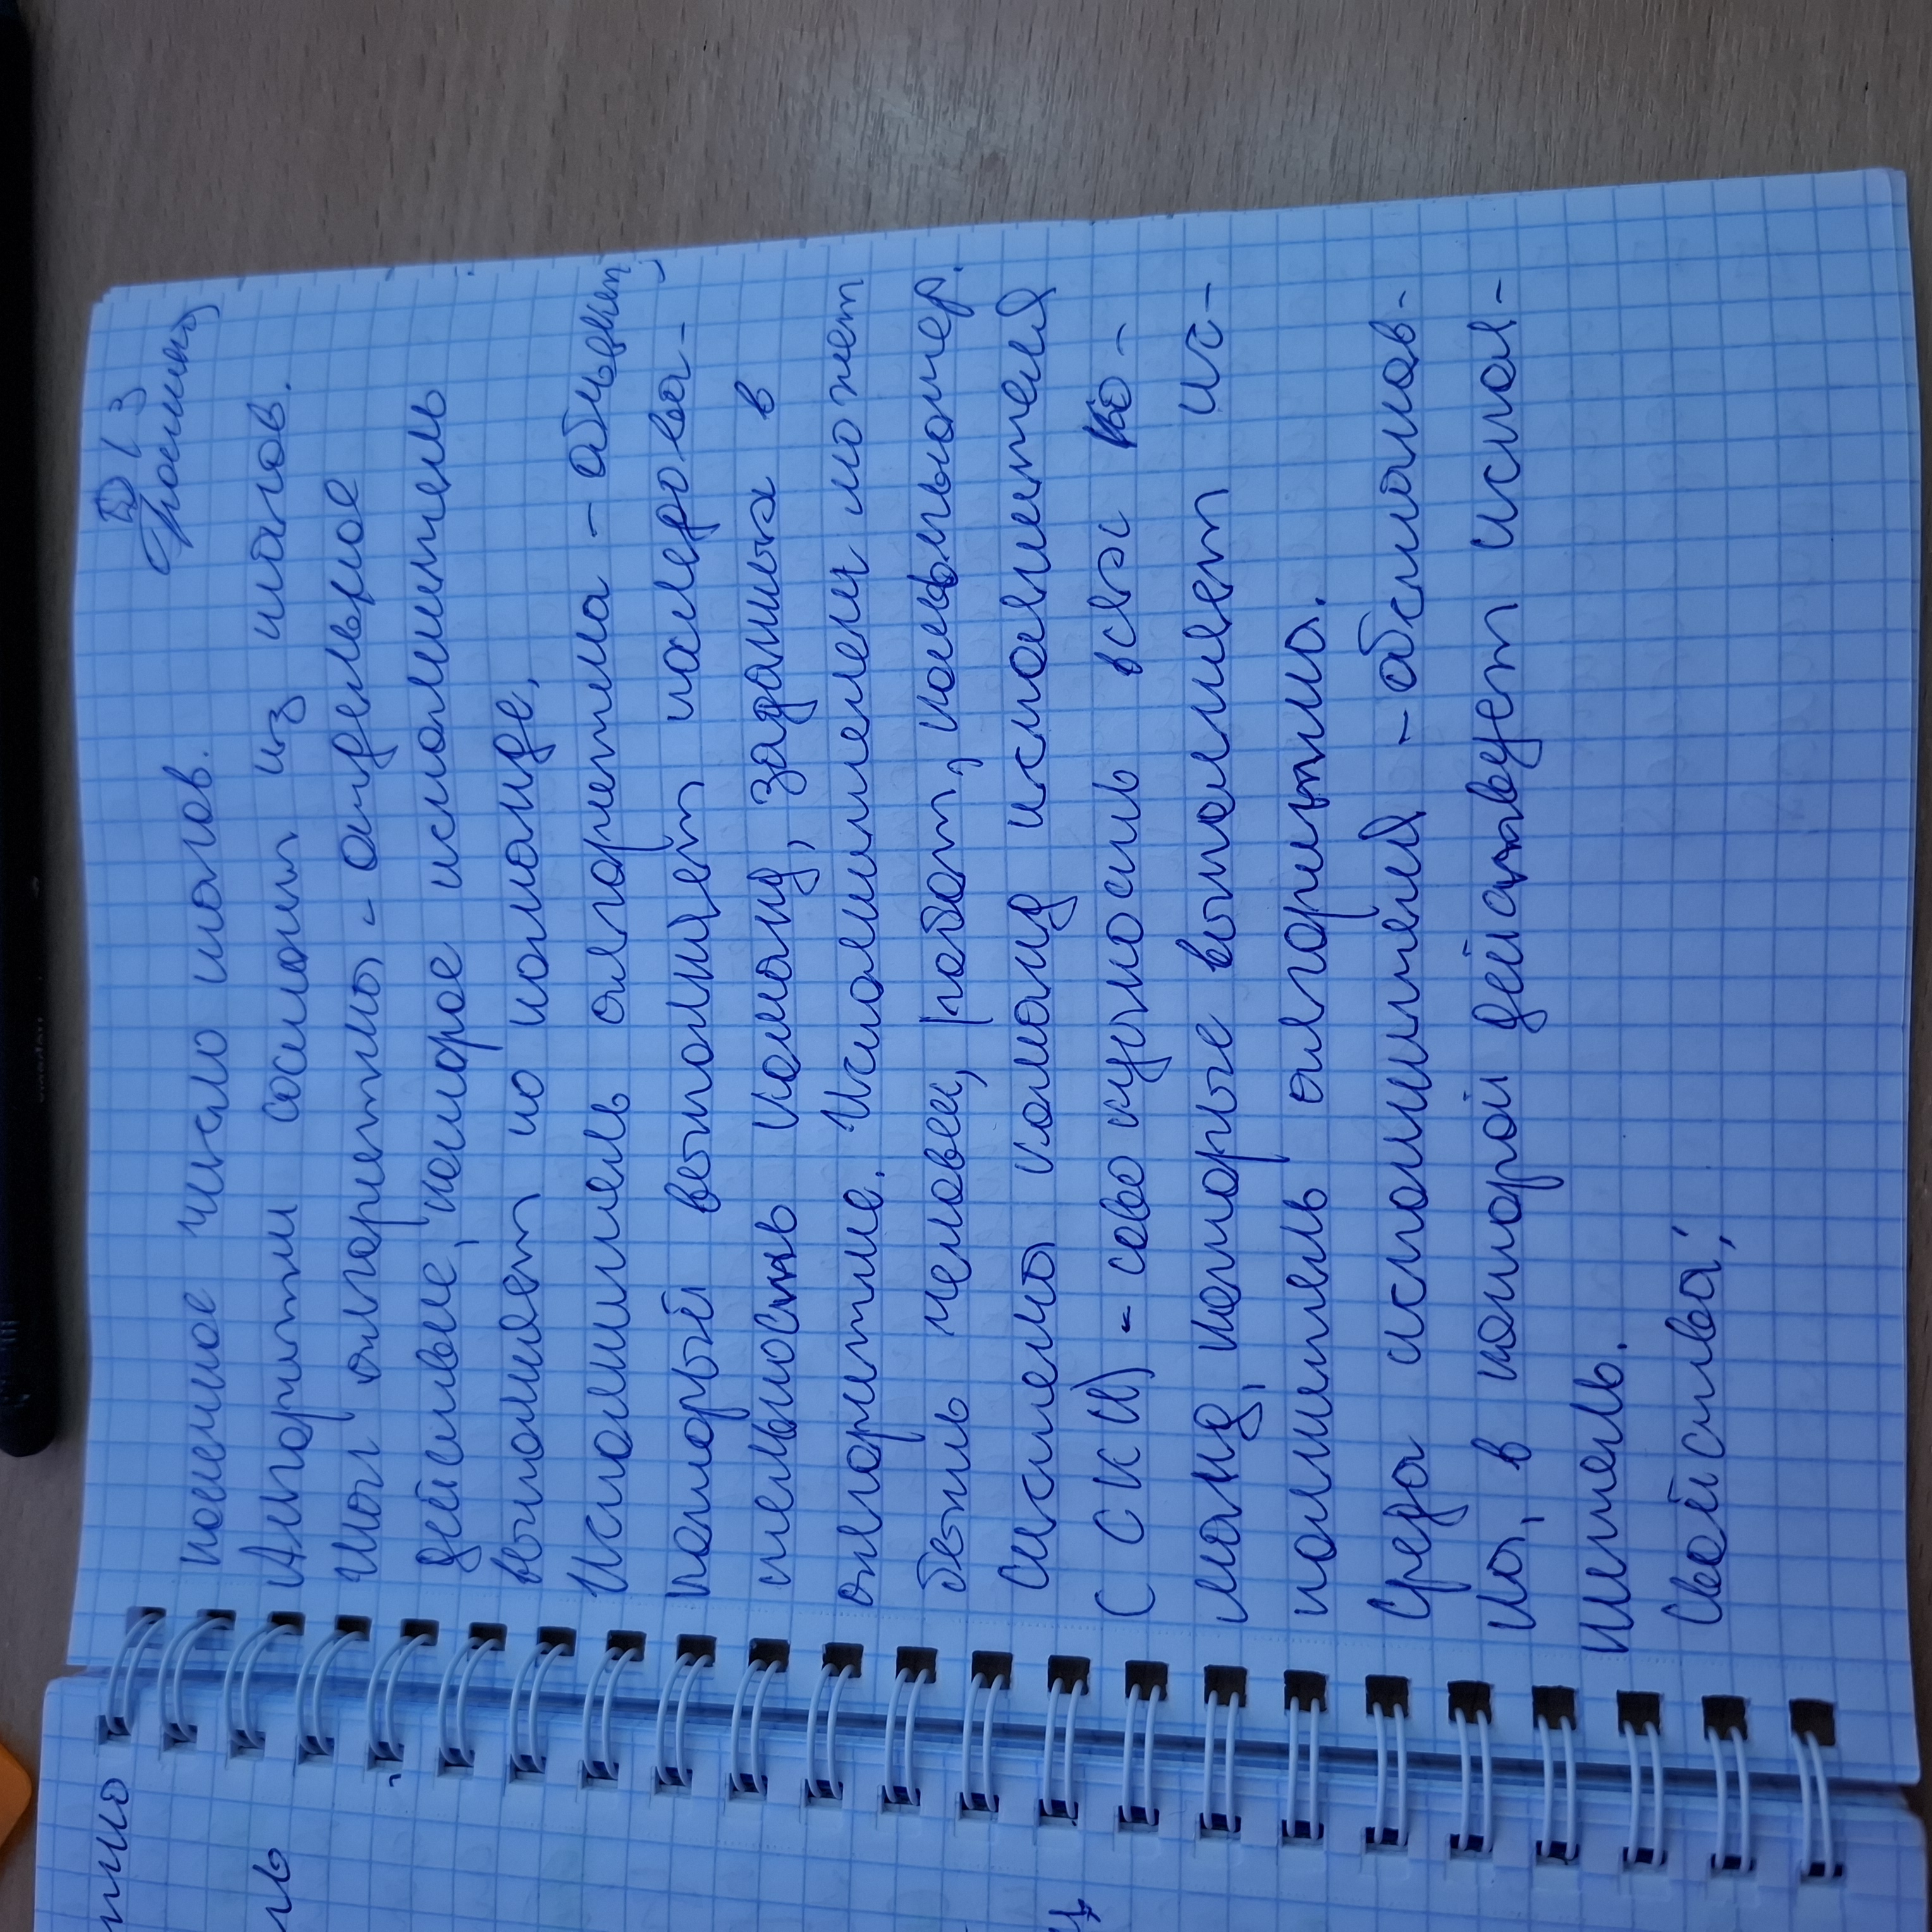 Д/З
конечное число шагов.
Алгоритм состоит из шагов.
Шаг алгоритма - отдельное
действие, которое исполнитель
выполняет по команде,
Исполнитель алгоритма - объект,
который выполняет последова-
тельность команд, заданных в
алгоритме. Исполнителем может
быть человек, робот, компьютер.
Система команд исполнителя
(СКИ) - совокупность всех ко-
манд, которые выполняет ис-
полнитель алгоритма.
Среда исполнителя - обстанов-
ка, в которой действует испол-
нитель.
Свойства: